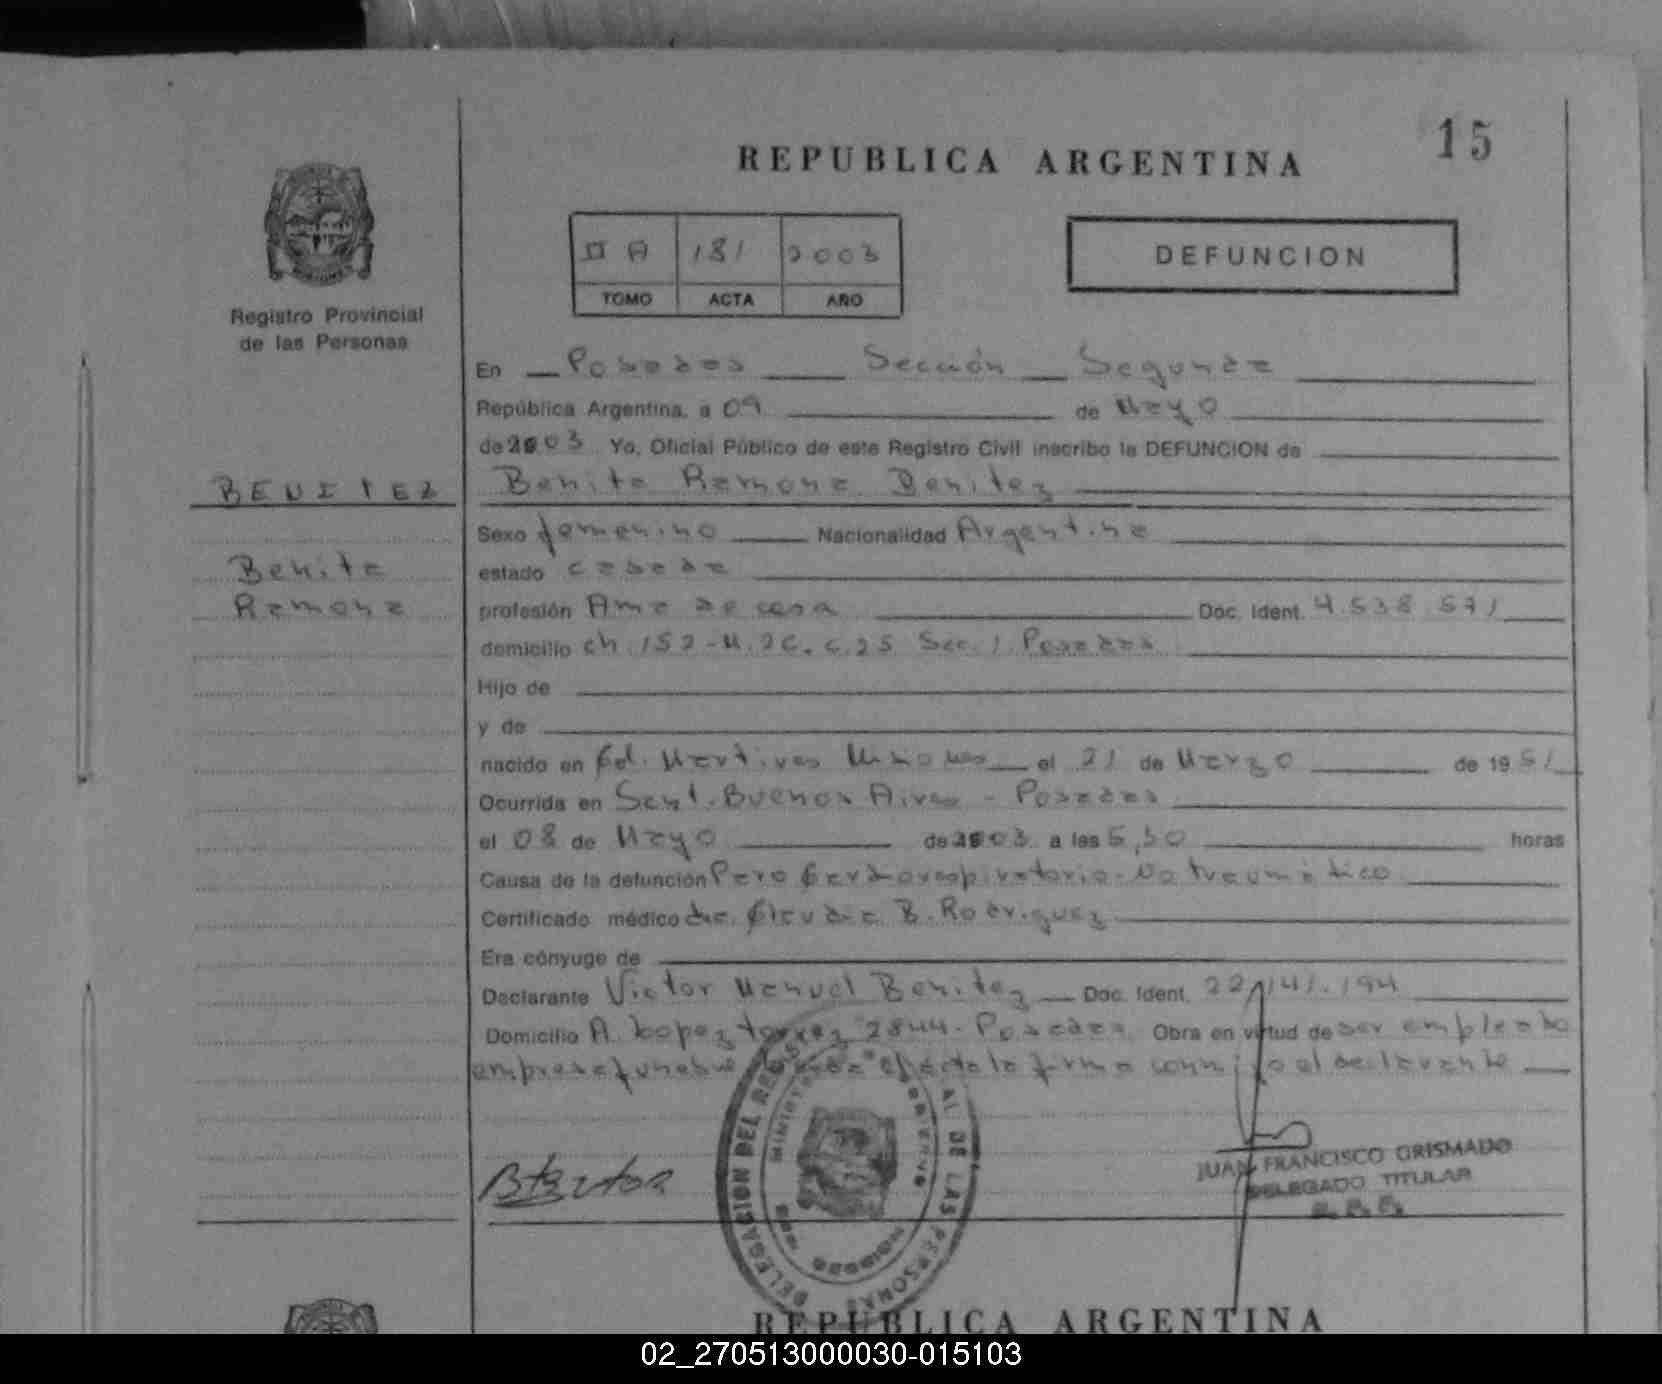 15
REPUBLICA ARGENTINA
Registro Provincial
de las Personas
II A 181 2003
TOMO ACTA AÑO
DEFUNCION
En Posadas Sección Segunda
República Argentina, a 09 de Mayo
de 2003. Yo, Oficial Público de este Registro Civil inscribo la DEFUNCION de
BENITEZ
Benita Ramona Benitez
Sexo femenino Nacionalidad Argentina
Benita
estado casada
Ramona
profesión Ama de casa Doc. Ident. 4.538.571
domicilio ch. 152-M.26. c.25 Sec. 1 Posadas
Hijo de
y de
nacido en Col. Martires Misiones el 21 de Marzo de 1951
Ocurrida en Sant. Buenos Aires - Posadas
el 08 de Mayo de 2003 a las 5,30 horas
Causa de la defunción Paro Cardiorespiratorio - No traumático
Certificado médico dra. Claudia B. Rodriguez
Era cónyuge de
Declarante Victor Manuel Benitez Doc. Ident. 22.141.194
Domicilio A. Lopez torrez 2844 - Posadas Obra en virtud de ser empleado
empresa funebre efecto la firma conmigo el declarante
DELEGACION DEL AL DE LAS PERSONAS
JUAN FRANCISCO GRISMADO
DELEGADO TITULAR
REPUBLICA ARGENTINA
02_270513000030-015103